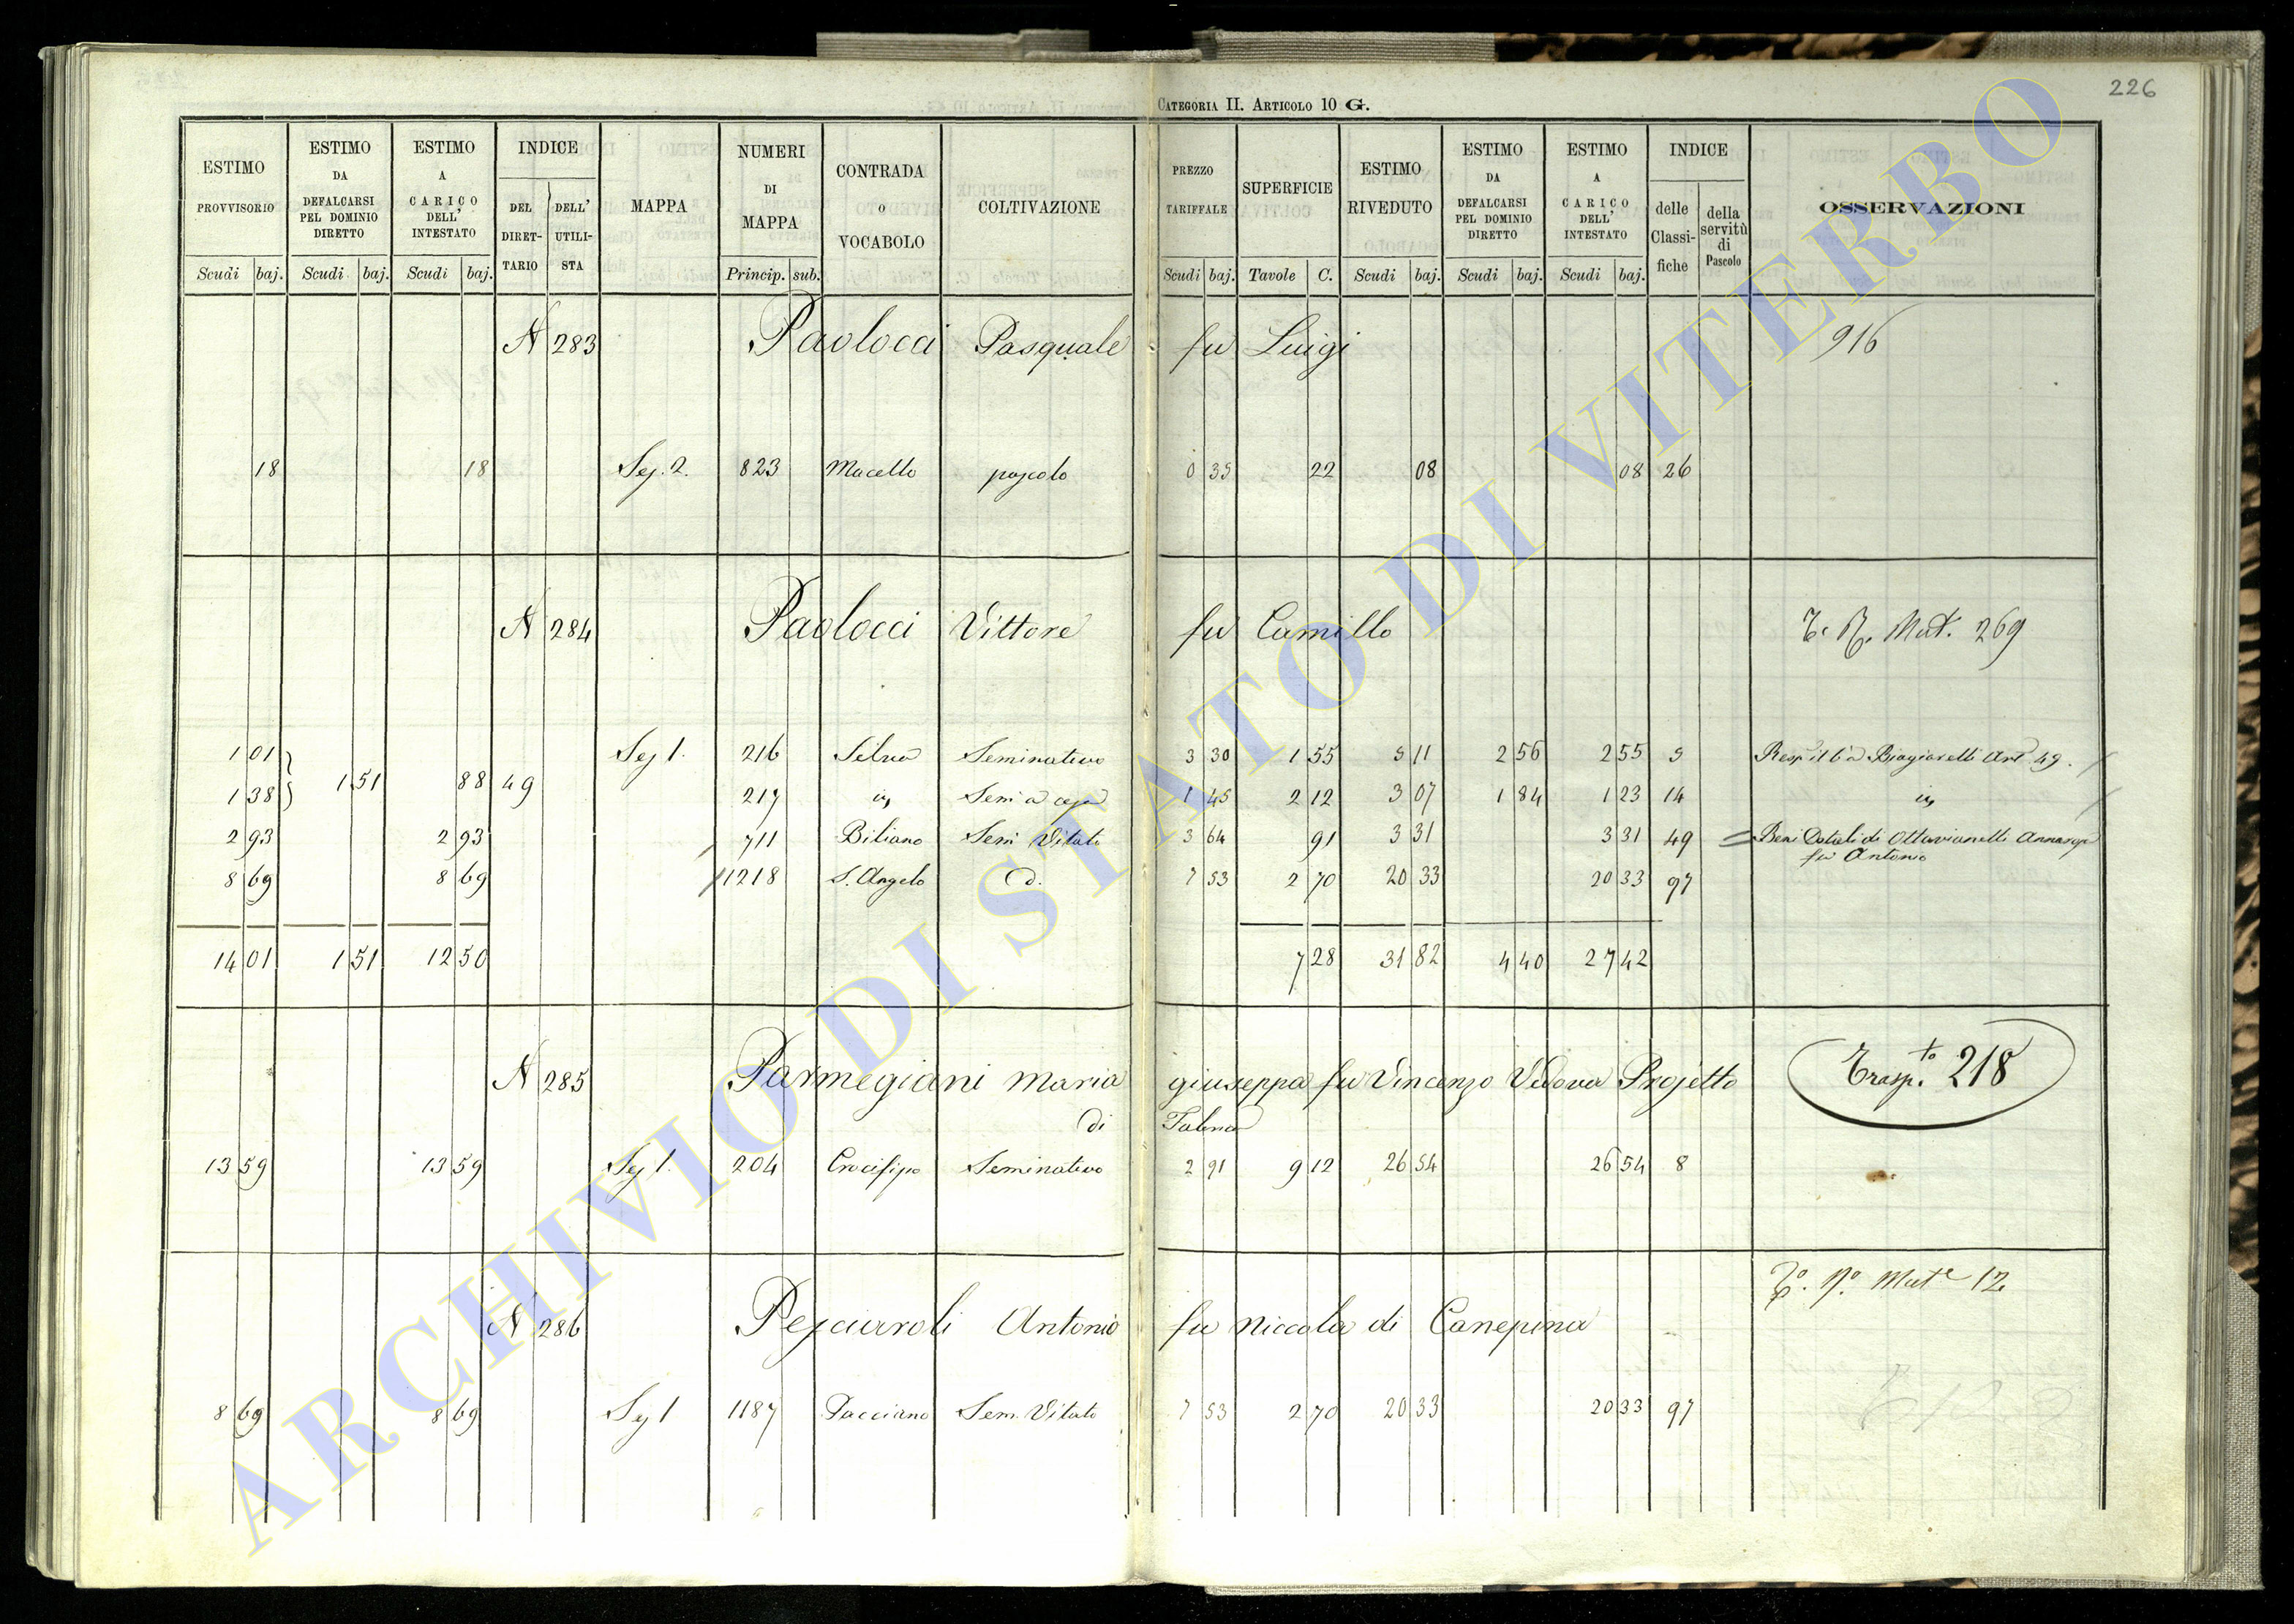 226
CATEGORIA II. ARTICOLO 10 G.
ESTIMO PROVVISORIO Scudi baj. | ESTIMO DA DEFALCARSI PEL DOMINIO DIRETTO Scudi baj. | ESTIMO A CARICO DELL' INTESTATO Scudi baj. | INDICE DEL DIRET-TARIO DELL' UTILI-STA | MAPPA | NUMERI DI MAPPA Princip. sub. | CONTRADA O VOCABOLO | COLTIVAZIONE | PREZZO TARIFFALE Scudi baj. | SUPERFICIE Tavole C. | ESTIMO RIVEDUTO Scudi baj. | ESTIMO DA DEFALCARSI PEL DOMINIO DIRETTO Scudi baj. | ESTIMO A CARICO DELL' INTESTATO Scudi baj. | INDICE delle Classi-fiche della servitù di Pascolo | OSSERVAZIONI
N 283 Paolocci Pasquale fu Luigi 916
18 18 Sez. 2. 823 Macello pascolo 0 35 22 08 08 26
N 284 Paolocci Vittore fu Camillo Mut. 269
1 01 Sez 1. 216 Selva Seminativo 3 30 1 55 5 11 2 56 2 55 5 Biagiarelli Art 49.
1 51 88 49
1 38 217 Sem 1 45 2 12 3 07 1 84 1 23 14
2 93 2 93 711 Biliano Sem Vitato 3 64 91 3 31 3 31 49 Beni Dotali di Ottavianelli Annarosa
fu Antonio
8 69 8 69 1218 S. Angelo d. 7 53 2 70 20 33 20 33 97
14 01 1 51 12 50 7 28 31 82 4 40 27 42
N 285 Parmegiani Maria giuseppa fu Vincenzo Vedova Projetto Trasp.to 218
di
13 59 13 59 Sez 1. 204 Crocifisso Seminativo 2 91 9 12 26 54 26 54 8
Mut.e 12
N 286 Pesciaroli Antonio fu Niccola di Canepina
8 69 8 69 Sez 1 1187 Pacciano Sem. Vitato 7 53 2 70 20 33 20 33 97
ARCHIVIO DI STATO DI VITERBO